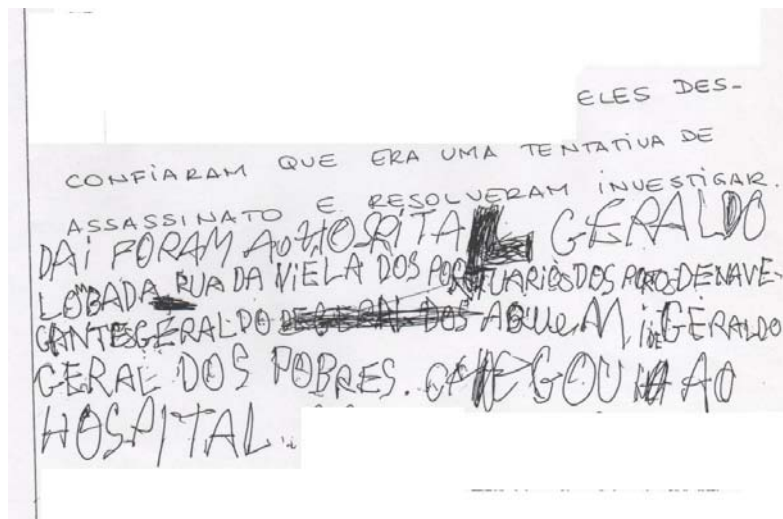 ELES DES-
CONFIARAM QUE ERA UMA TENTATIVA DE
ASSASSINATO E RESOLVERAM INVESTIGAR.
DAÍ FORAM AO HOSPITAL GERALDO
LOBADA RUA DA VIELA DOS PORTUARIOS DOS POTOS DE NAVE-
GANTES GERALDO ABUEM GERALDO
GERAL DOS POBRES. CHEGOU AO
HOSPITAL..